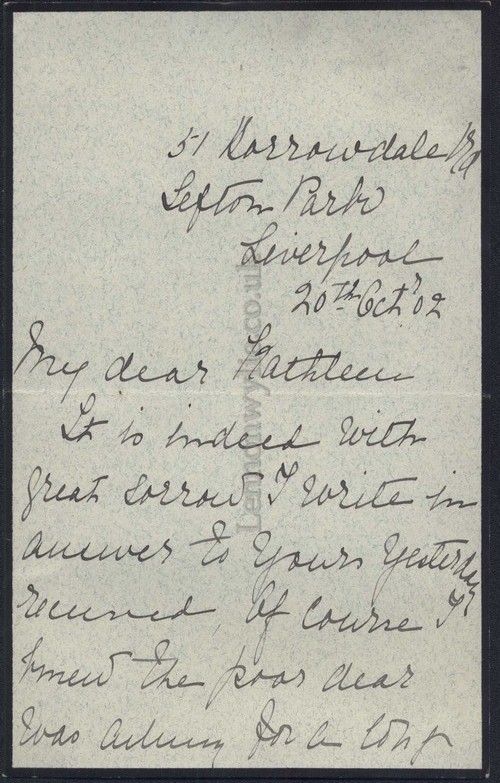 51 Borrowdale Rd
Sefton Park
Liverpool
20th Octr 02
My dear Kathleen
It is indeed with
great sorrow I write in
answer to yours yesterday
received, Of course I
knew the poor dear
was ailing for a long